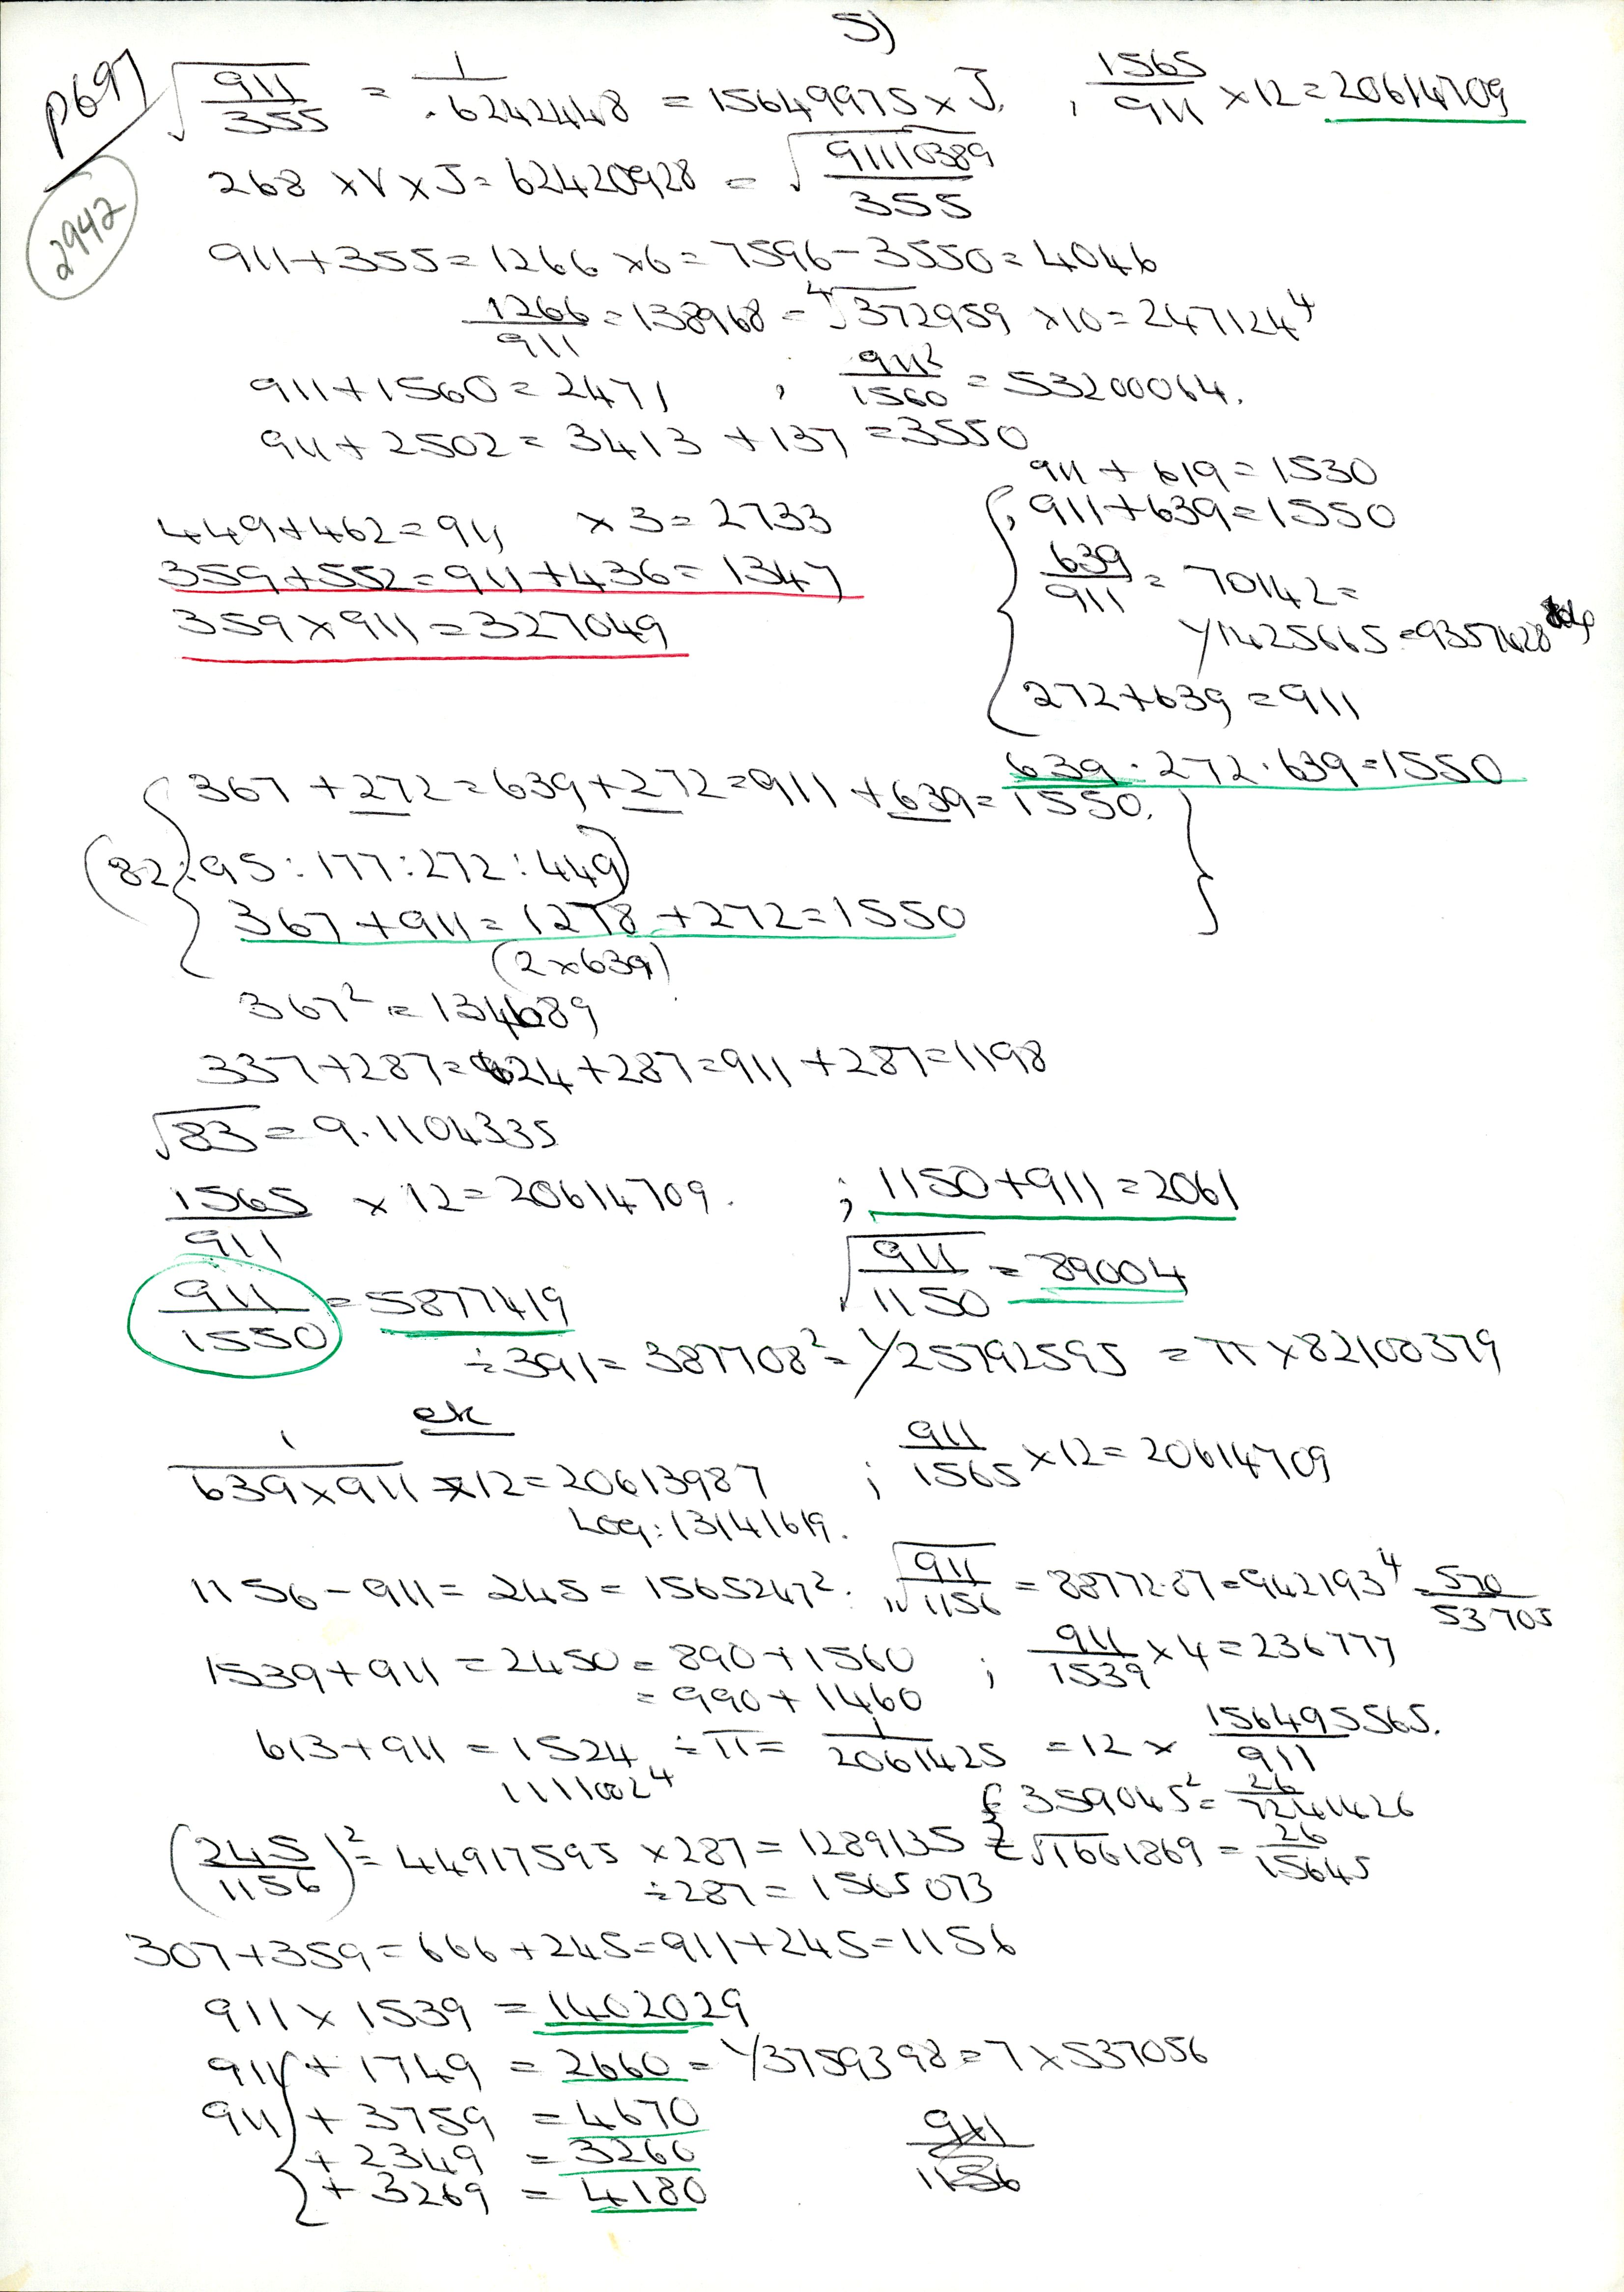 5)
P697
2942
√911/355 = 1/.6242448 = 15649975 × J. , 1565/911 × 12 = 20614709
268 × V × J = 62420928 = √91110389/355
911 + 355 = 1266 × 6 = 7596 - 3550 = 4046
1266/911 = 138968 = ⁴√372959 × 10 = 247124⁴
911 + 1560 = 2471 , 911²/1560 = 53200064.
911 + 2502 = 3413 + 137 = 3550
911 + 619 = 1530
449 + 462 = 911, × 3 = 2733
, 911 + 639 = 1550
359 + 552 = 911 + 436 = 1347
639/911 = 70142 =
359 × 911 = 327049
1/1425665 = 9357628
272 + 639 = 911
639 · 272 · 639 = 1550
367 + 272 = 639 + 272 = 911 + 639 = 1550.
(82 : 95 : 177 : 272 : 449)
367 + 911 = 1278 + 272 = 1550
(2 × 639)
367² = 134689
337 + 287 = 624 + 287 = 911 + 287 = 1198
√83 = 9.1104335
1565/911 × 12 = 20614709. ; 1150 + 911 = 2061
911/1550 = 5877419 √911/1150 = 89004
÷ 391 = 387708² = 1/25792595 = π × 82100379
ex
1/639 × 911 × 12 = 20613987 ; 911/1565 × 12 = 20614709
Log: 13141619.
1156 - 911 = 245 = 1565247² . √911/1156 = 88772.87 = 942193⁴ = 570/53705
1539 + 911 = 2450 = 890 + 1560 ; 911/1539 × 4 = 236777
= 990 + 1460
613 + 911 = 1524 ÷ π = 1/2061425 = 12 × 156495565./911
1111002⁴
£ 359045² = 26/7241426
(245/1156)² = 44917595 × 287 = 1289135 √1661869 = 26/15645
÷ 287 = 1565073
307 + 359 = 666 + 245 = 911 + 245 = 1156
911 × 1539 = 1402029
911 + 1749 = 2660 = 1/3759398 = 7 × 537056
911 + 3759 = 4670
+ 2349 = 3260
+ 3269 = 4180
911/1156